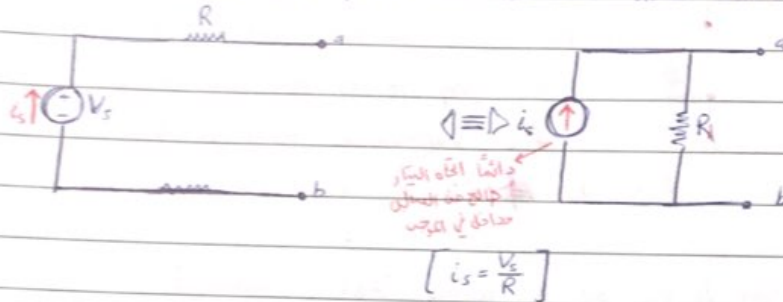 R
a
is Vs
b
is
R
a
b
دائماً اتجاه التيار
خارج من السالب
داخل في الموجب
[ is = Vs / R ]